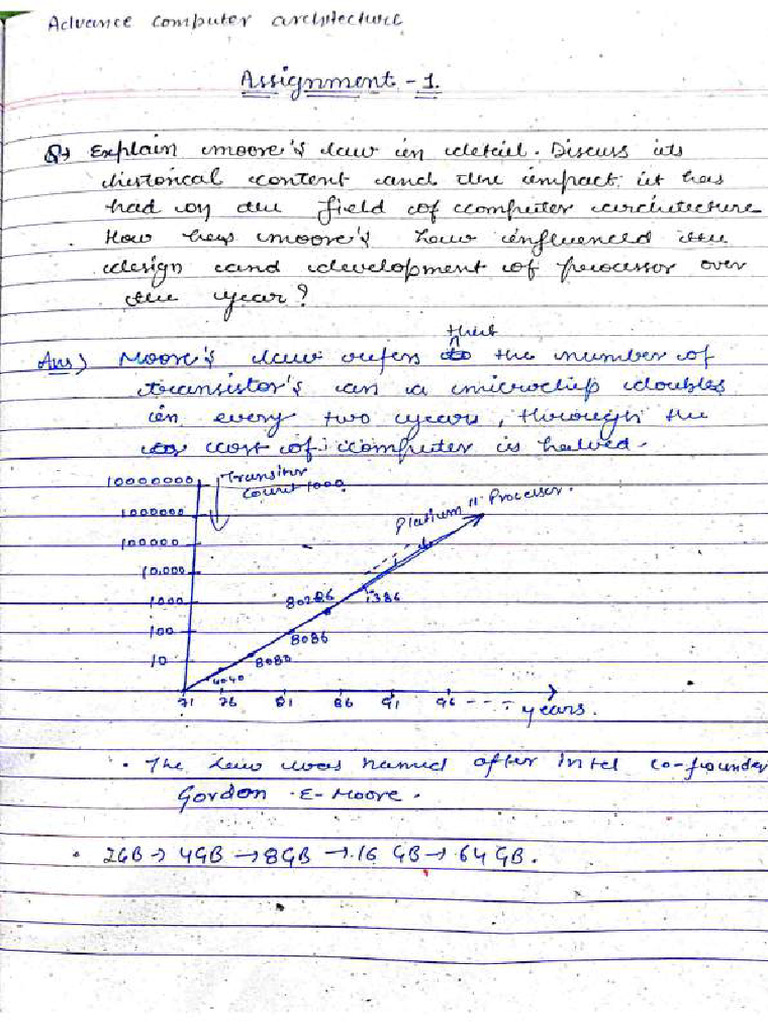 Advance computer architecture
Assignment - 1.
Q→ Explain moore's law in detail. Discuss its
historical content and the impact it has
had on the field of computer architecture
How has moore's law influenced the
design and development of processor over
the year?
Ans) Moore's law refers that the number of
transistor's in a microchip doubles
in every two years, through the
cost of computer is halved.
10000000
Transitor
count 1000
1000000
100000
10,000
1000
100
10
Processor.
80286
i386
8086
8080
4040
71 76 81 86 91 96 - - - -
years.
• The law was named after Intel co-founder
Gordon -E- Moore.
• 2GB → 4GB → 8GB → 16 GB → 64 GB.